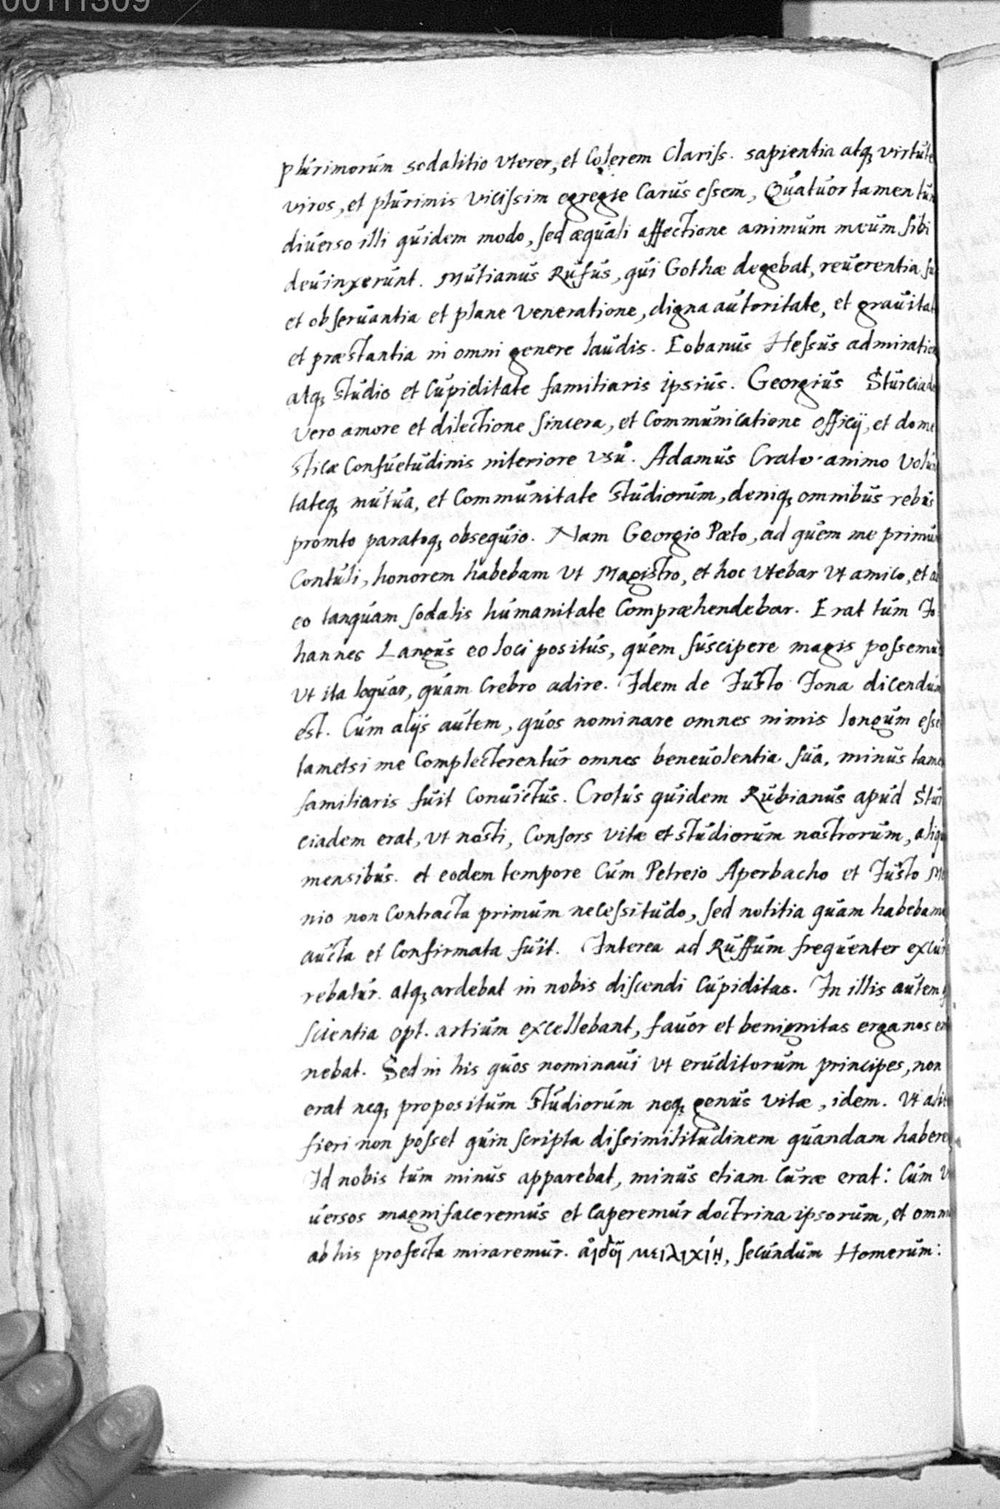 00111309
plurimorum sodalitio vterer, et Colerem Clariss. sapientia atq, virtute
viros, et plurimis vicissim egregie Carus essem, Quatuor tamen tum
diuerso illi quidem modo, sed æquali affectione animum meum sibi
deuinxerunt. Mutianus Rufus, qui Gothæ degebat, reuerentia su
et obseruantia et plane veneratione, digna autoritate, et grauitat
et præstantia in omni genere laudis. Eobanus Hessus admiration
atq, studio et Cupiditate familiaris ipsius. Georgius Sturciade
vero amore et dilectione sincera, et Communicatione officij, et dome
sticæ Consuetudinis interiore vsu. Adamus Crato animo volun
tateq, mutua, et Communitate studiorum, deniq, omnibus rebus
promto paratoq, obsequio. Nam Georgio Pæto, ad quem me primum
Contuli, honorem habebam vt Magistro, et hoc vtebar vt amico, et ab
eo tanquam sodalis humanitate Compræhendebar. Erat tum Jo
hannes Langus eo loci positus, quem suscipere magis possemus
vt ita loquar, quam Crebro adire. Idem de Justo Jona dicendum
est. Cum alijs autem, quos nominare omnes nimis longum esset
tametsi me Complecterentur omnes beneuolentia sua, minus tame
familiaris fuit Conuictus. Crotus quidem Rubianus apud Stur
ciadem erat, vt nosti, Consors vitæ et studiorum nostrorum, aliqu
mensibus. et eodem tempore Cum Petreio Aperbacho et Justo Me
nio non Contracta primum necessitudo, sed notitia quam habebamu
aucta et Confirmata fuit. Interea ad Ruffum frequenter excur
rebatur. atq, ardebat in nobis discendi Cupiditas. In illis autem q
scientia opt. artium excellebant, fauor et benignitas erga nos em
nebat. Sed in his quos nominaui vt eruditorum principes, non
erat neq, propositum studiorum neq, genus vitæ, idem. Vt alit
fieri non posset quin scripta dissimilitudinem quandam habere
Id nobis tum minus apparebat, minus etiam Curæ erat: Cum v
uersos magni faceremus et Caperemur doctrina ipsorum, et omn
ab his profecta miraremur. αἰδοῖ μειλιχίῃ, secundum Homerum: